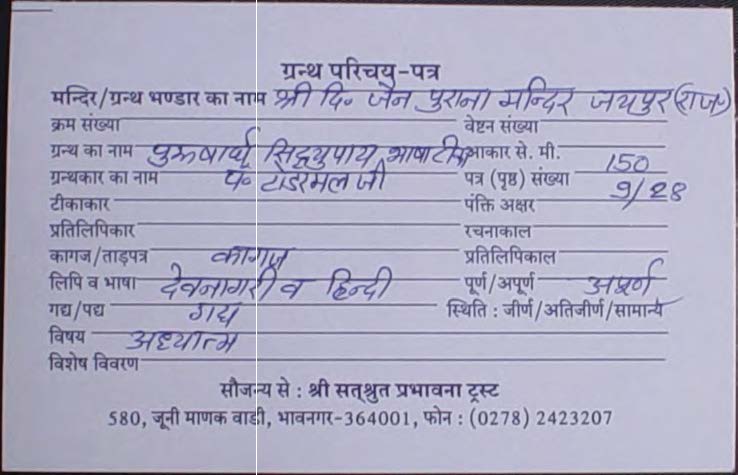 ग्रन्थ परिचय-पत्र
मन्दिर/ग्रन्थ भण्डार का नाम श्री दि॰ जैन पुराना मन्दिर जयपुर (राज.)
क्रम संख्या वेष्टन संख्या
ग्रन्थ का नाम पुरूषार्थ सिद्ध्युपाय, भाषा टीका आकार से. मी.
ग्रन्थकार का नाम पं॰ टोडरमल जी पत्र (पृष्ठ) संख्या 150
टीकाकार पंक्ति अक्षर 9/28
प्रतिलिपिकार रचनाकाल
कागज/ताड़पत्र कागज प्रतिलिपिकाल
लिपि व भाषा देवनागरी व हिन्दी पूर्ण/अपूर्ण अपूर्ण
गद्य/पद्य गद्य स्थिति : जीर्ण/अतिजीर्ण/सामान्य
विषय अध्यात्म
विशेष विवरण
सौजन्य से : श्री सत्श्रुत प्रभावना ट्रस्ट
580, जूनी माणक वाडी, भावनगर-364001, फोन : (0278) 2423207